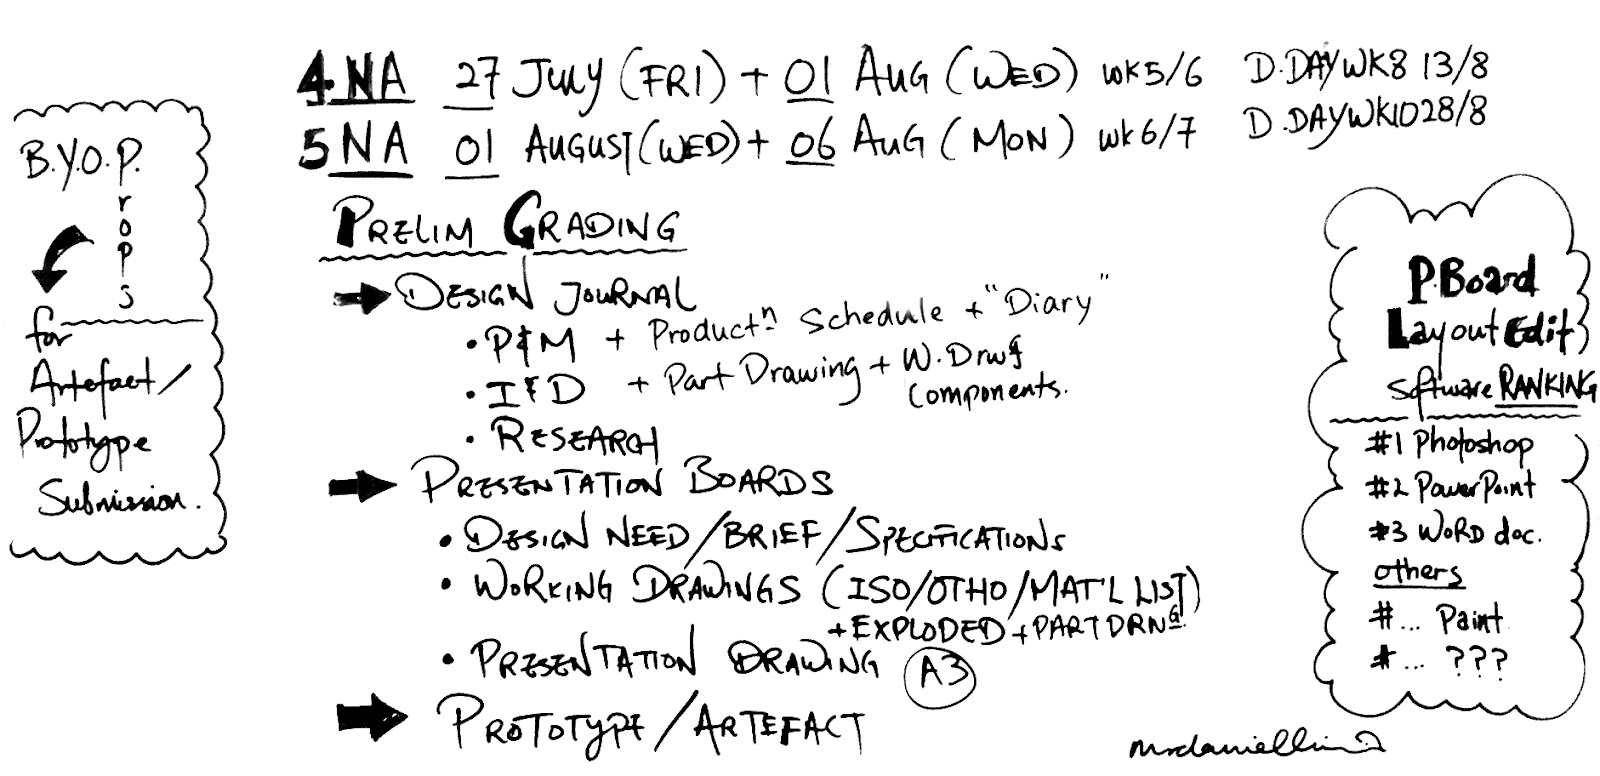 4NA 27 JULY (FRI) + 01 AUG (WED) WK5/6 D.DAY WK8 13/8
5NA 01 AUGUST (WED) + 06 AUG (MON) WK6/7 D.DAY WK10 28/8
B.Y.O.P.
rops
for
Artefact/
Prototype
Submission.
PRELIM GRADING
DESIGN JOURNAL
• P&M + Productn Schedule + "Diary"
• I&D + Part Drawing + W.Drwg
Components.
• RESEARCH
PRESENTATION BOARDS
• DESIGN NEED/BRIEF/SPECIFICATIONS
• WORKING DRAWINGS (ISO/OTHO/MAT'L LIST)
+EXPLODED+PART DRNG
• PRESENTATION DRAWING A3
PROTOTYPE/ARTEFACT
P.Board
Layout Edit)
Software RANKING
#1 Photoshop
#2 PowerPoint
#3 WORD doc.
others
#... Paint
#... ???